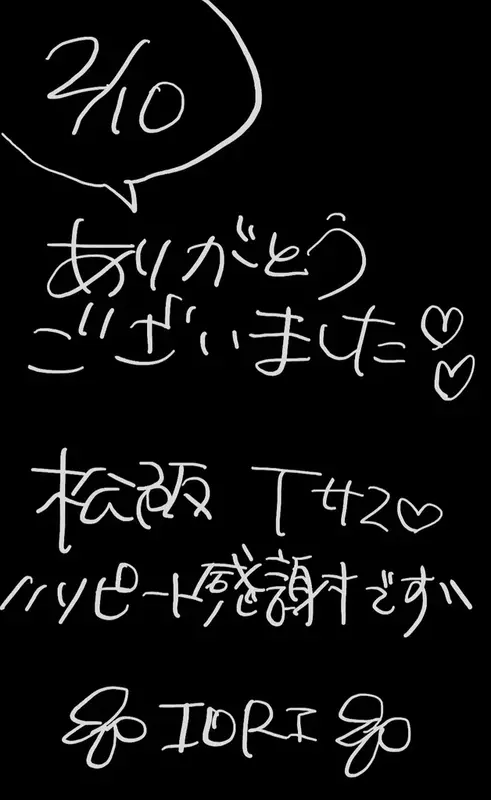 2/10
ありがとう
ございました♡
♡
松阪 T42♡
〃リピート感謝です〃
IORI